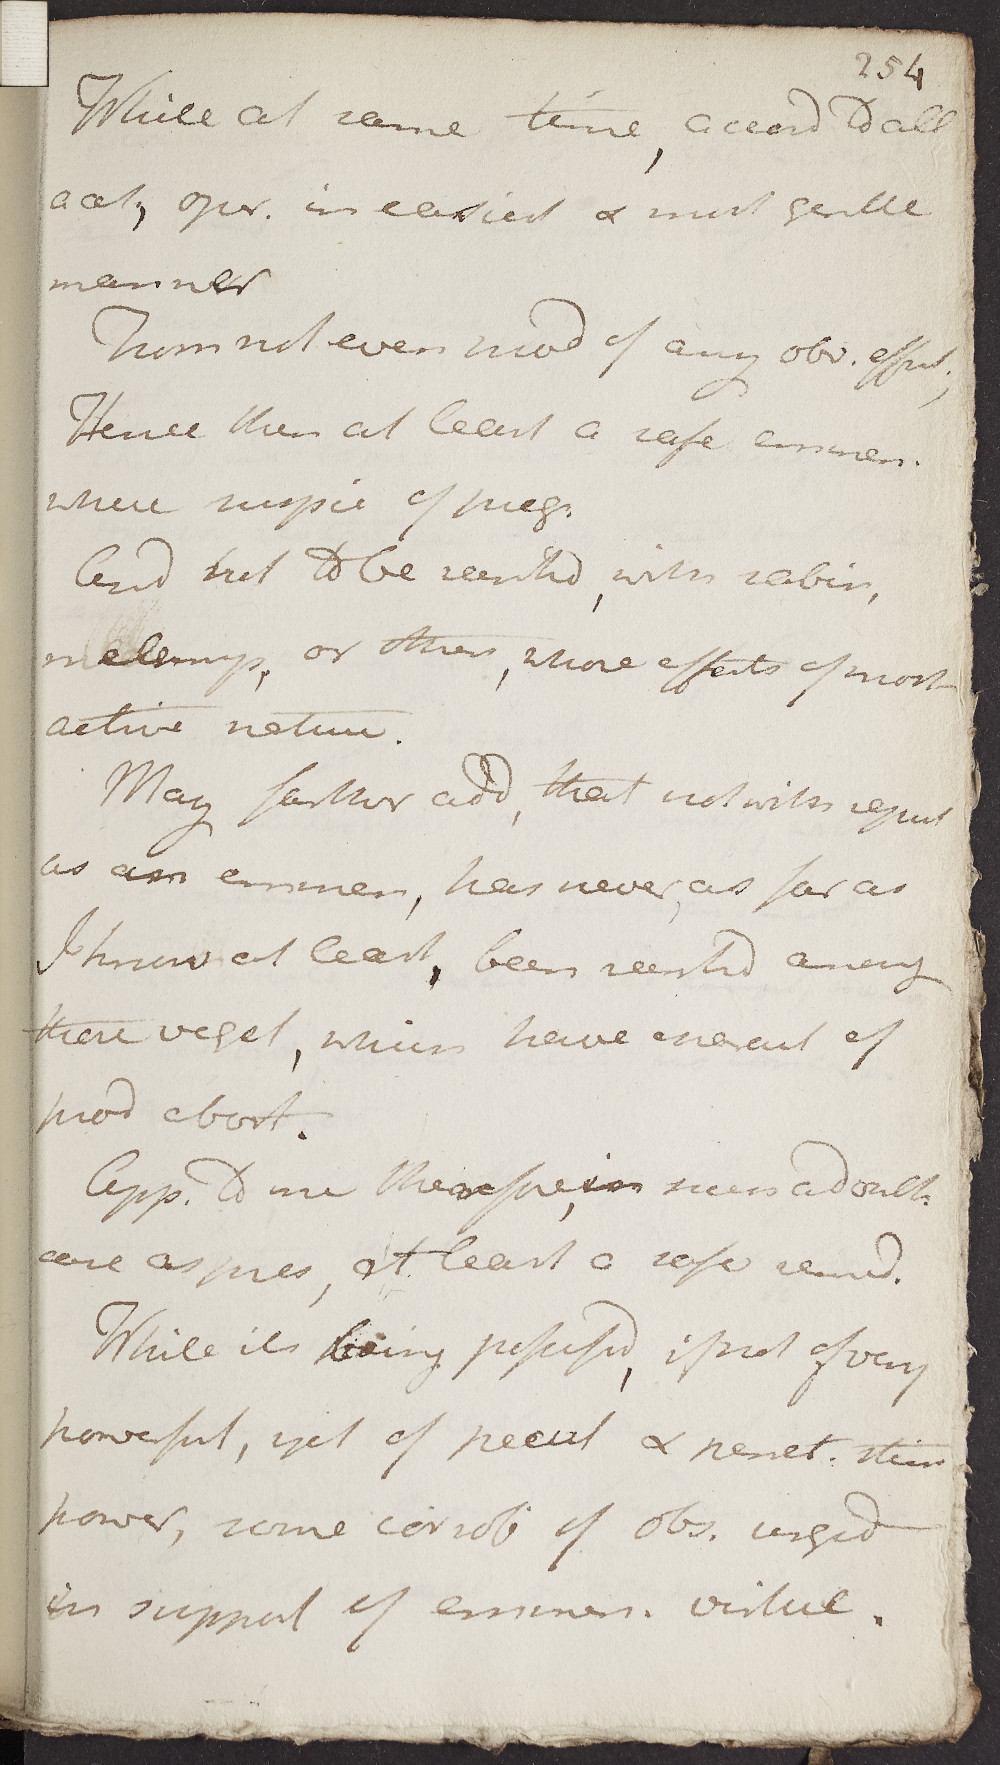 254
While at same time, accord to all
act, oper. in easiest & most gentle
manner
From not even prod of any obv. effect;
Hence then at least a safe emmen.
where suspic of preg.
And not to be reckd, with sabin,
melamp, or others, whose effects of most
active nature.
May farther add, that notwith reput
as an emmen, has never, as far as
I know at least, been reckd among
those veget, which have charact of
prod abort.
App. to me therefore, in such a doubt.
case as pres, at least a safe remed.
While its being possessd, if not of very
powerful, yet of pecul & penet. stim
power, some corrob of obs. urged
in support of emmen. virtue.